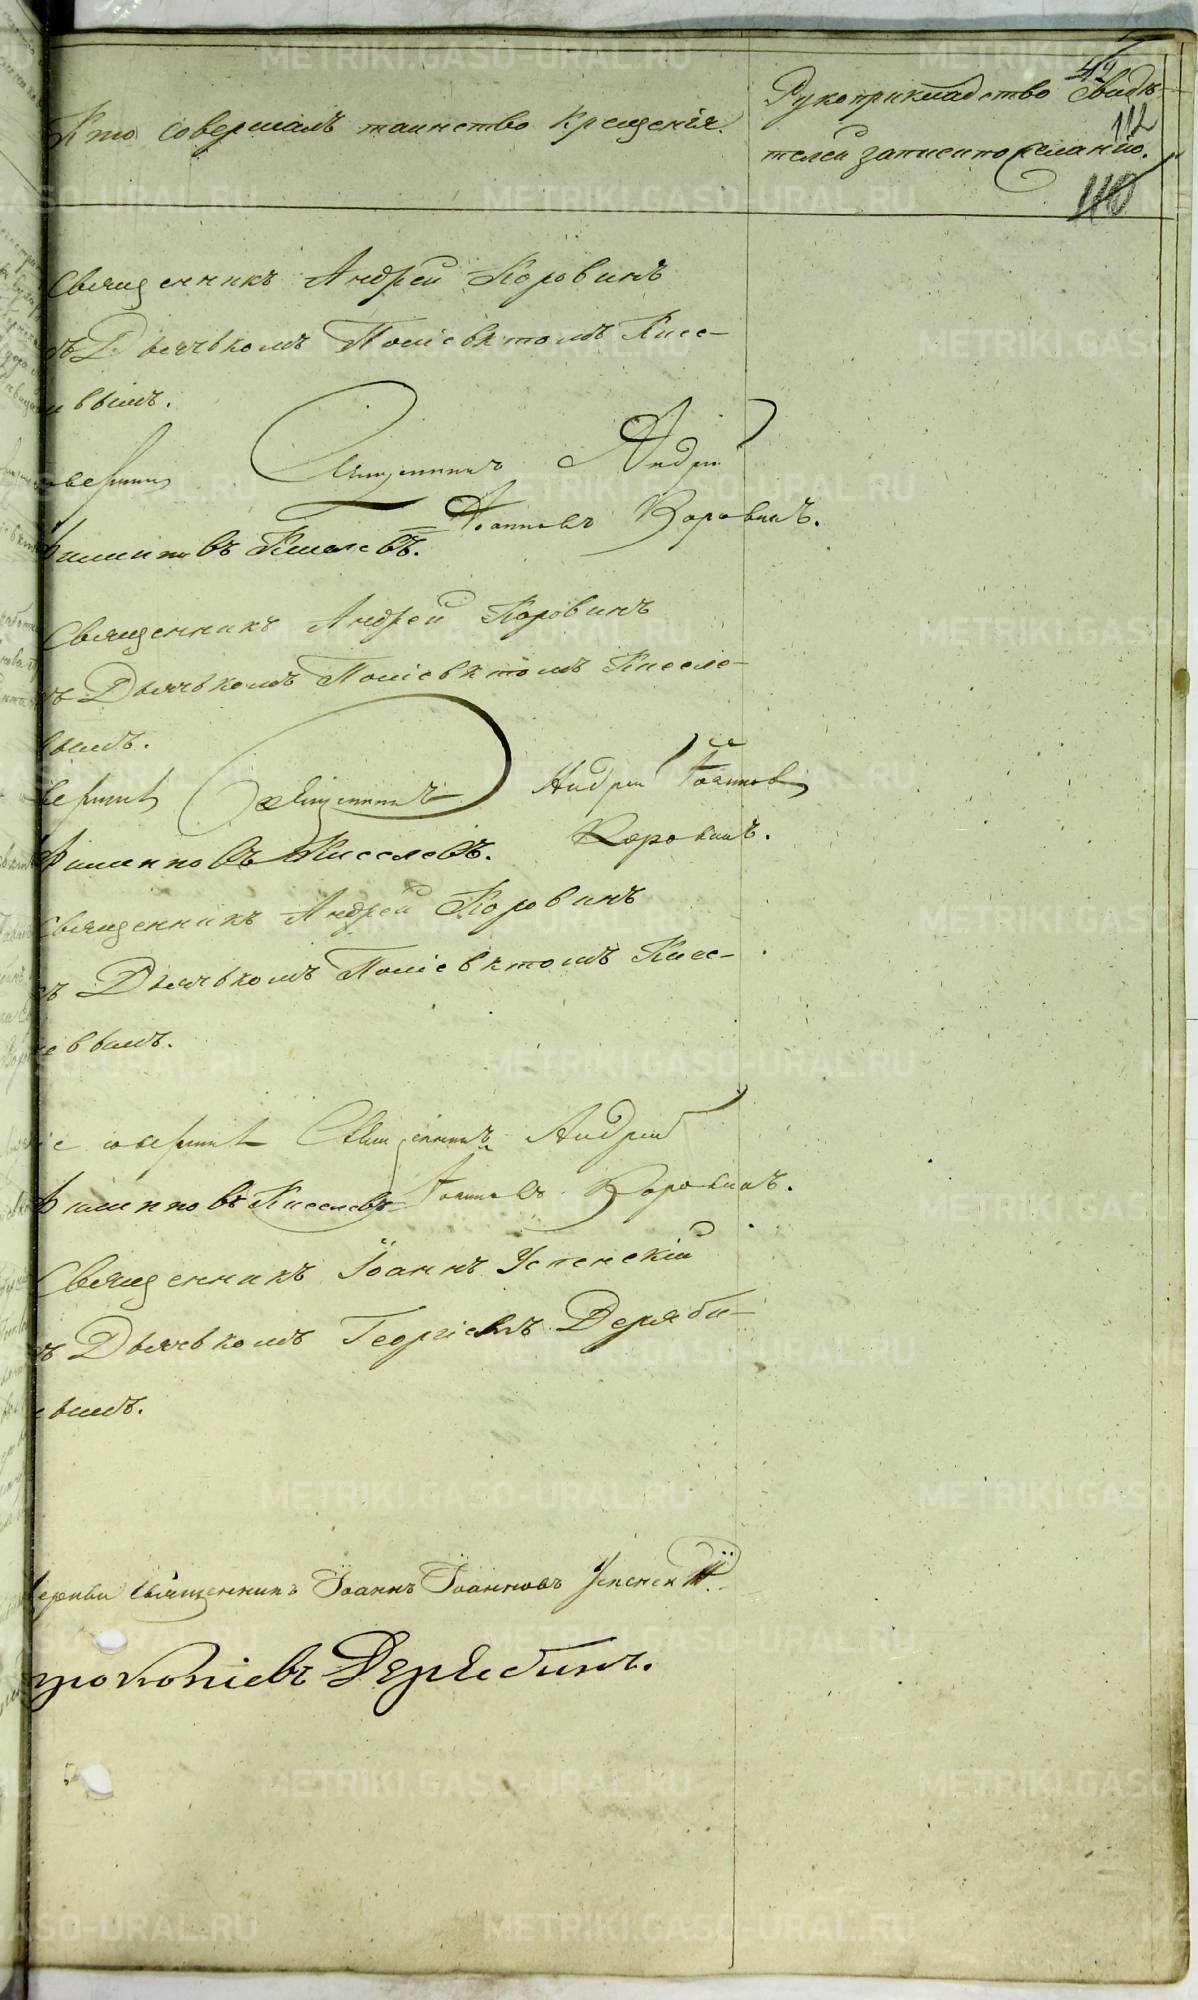 Кто совершалъ таинство крещенія.
Рукоприкладство свидѣ-
телей записи по желанію.
42
112
110
Священникъ Андрей Коровинъ
съ Дьячькомъ Поліевктомъ Кисе-
вымъ.
Священникъ Андрей
Іоанновъ Коровинъ.
Филипповъ Киселевъ.
Священникъ Андрей Коровинъ
съ Дьячькомъ Поліевктомъ Киселе-
вымъ.
Священникъ Андрей Іоаннов
Коровинъ.
Филипповъ Киселевъ.
Священникъ Андрей Коровинъ
съ Дьячькомъ Поліевктомъ Кисе-
левымъ.
Священникъ Андрей
Филипповъ Киселевъ Іоанновъ Коровинъ.
Священникъ Іоаннъ Успенскій
съ Дьячькомъ Георгіемъ Деряби-
нымъ.
Церкви священникъ Іоаннъ Іоанновъ Успенскій.
Прокопіевъ Дерябинъ.
METRIKI.GASO-URAL.RU